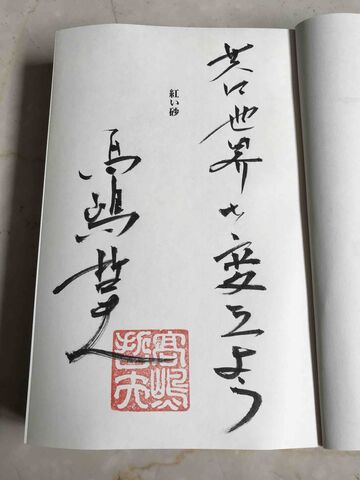 共に世界を変えよう
紅い砂
高嶋哲夫
高嶋
哲夫